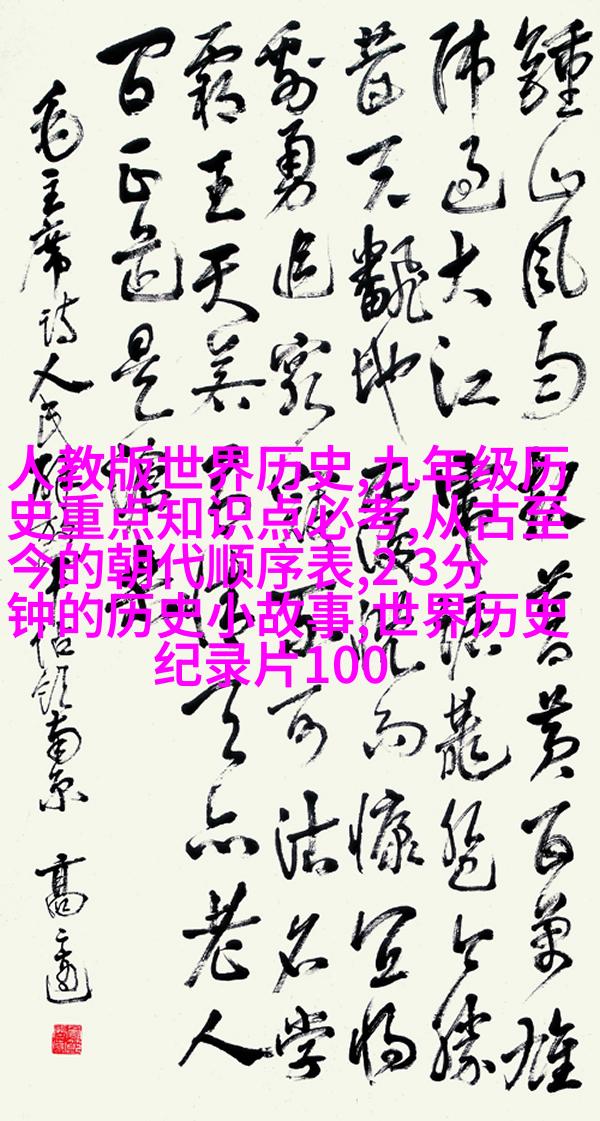 鍾山風雨起蒼黃百萬雄
師過大江虎踞龍盤今勝
昔天翻地覆慨而慷宜將
剩勇追窮寇不可沽名學
霸王天若有情天亦老人
間正道是滄桑
毛主席詩人民解放軍佔領南京 高
人教版世界历史,九年级历
史重点知识点必考,从古至
今的朝代顺序表,2-3分
钟的历史小故事,世界历史
纪录片100